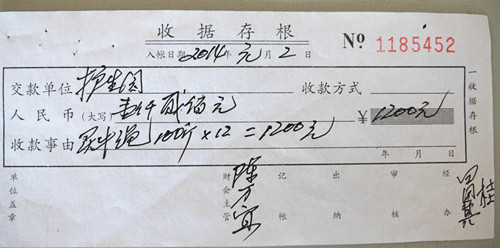 收据存根
入帐日期 2014年元月2日
№ 1185452
交款单位 护生园 收款方式
人民币(大写) 壹仟贰佰元 ¥1200元
收款事由 买牛绳 100斤×12=1200元
年 月 日
一收据存根
单位盖章 财会主管 陈万宜 记帐 出纳 审核 经办